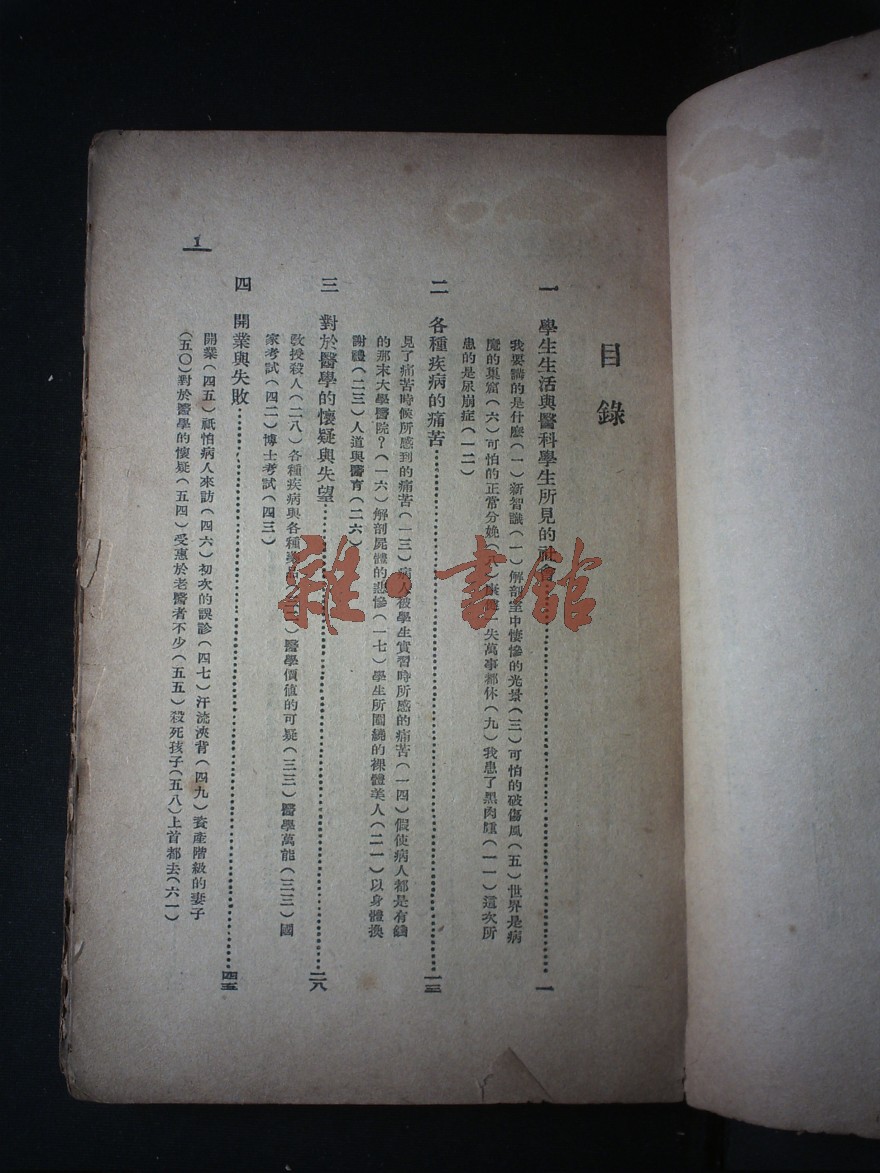 目錄
一 學生生活與醫科學生所見的社會……一
我要講的是什麼(一)新智識(一)解剖室中悽慘的光景(三)可怕的破傷風(五)世界是病
魔的集窩(六)可怕的正常分娩 一失萬事都休(九)我患了黑肉腫(一一)這次所
患的是尿崩症(一二)
二 各種疾病的痛苦……一三
見了痛苦時候所感到的痛苦(一三)病人被學生實習時所感的痛苦(一四)假使病人都是有錢
的那末大學醫院?(一六)解剖屍體的悲慘(一七)學生所圍繞的裸體美人(二一)以身體換
謝禮(二三)人道與醫育(二六)
三 對於醫學的懷疑與失望……二八
教授殺人(二八)各種疾病與各種藥品 醫學價值的可疑(三三)醫學萬能(三三)國
家考試(四二)博士考試(四三)
四 開業與失敗……四五
開業(四五)祇怕病人來訪(四六)初次的誤診(四七)汗流浹背(四九)資產階級的妻子
(五〇)對於醫學的懷疑(五四)受惠於老醫者不少(五五)殺死孩子(五八)上首都去(六一)
1
雜·書館